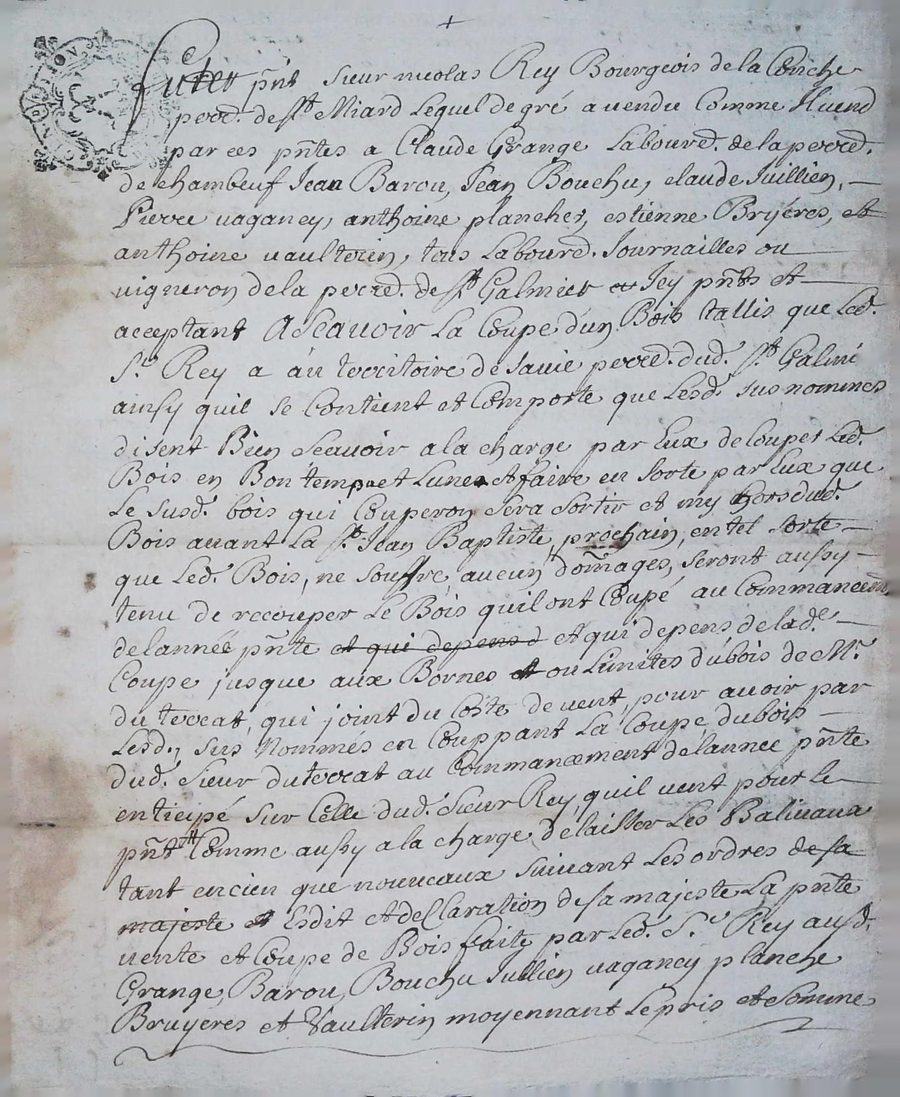 +
Futet pñt sieur nicolas Rey Bourgeois de la Conche
parr. de St. Miard Lequel de gre a vendu Comme Il vend
par ces pñtes a Claude Grange Labourr. de la parr.
de Chambeuf Jean Barou, Jean Bouchu, claude Juillien,
Pierre vaganey, anthoine plancher, estienne Bryéres, et
anthoine vaulterin, tous Labourr. Journailles ou
vigneron de la parr. de St Galmier Icy pñts et
acceptant Ascauoir La Coupe d'un Bois tallis que Led.
Sr. Rey a au territoire de Sauie parr. dud. St Galmié
ainsy quil se Contient et Comporte que Lesd. sus nommes
disent Bien Scauoir a la charge par Eux de Coupes Led.
Bois en Bon temps et Lunes et faire en Sorte par Eux que
Le Susd. bois qui Couperon sera Sortir et my hors dud.
Bois auant La St. Jean Baptiste, prochain, en tel Sorte
que Led. Bois, ne souffre aucun dom̃ages, seront aussy
tenu de recouper Le Bois quil ont Coupé au Commancem
de l'année pñte et qui depens d et qui depens de lad.
Coupe jusque aux Bornes et ou Limites du bois de Mr.
du terrat, qui joint du Costé de vent, pour auoir par
Lesd., sus Nommés en Couppant La Coupe du bois
dud. Sieur du terrat au Commancement de lannee pñte
enticipé sur Celle dud. Sieur Rey quil vent pour le
pñt Comme aussy a la charge de laisser Les Balivaux
tant encien que nouueaux suiuant Les ordres de sa
majeste et Esdit et declaration de sa majeste La pñte
uente et Coupe de Bois faite par Led. Sr Rey ausd.
Grange, Barou, Bouchu Jullien vagancy planche
Bruyeres et Vaulterin moyennant Le pris et Somme